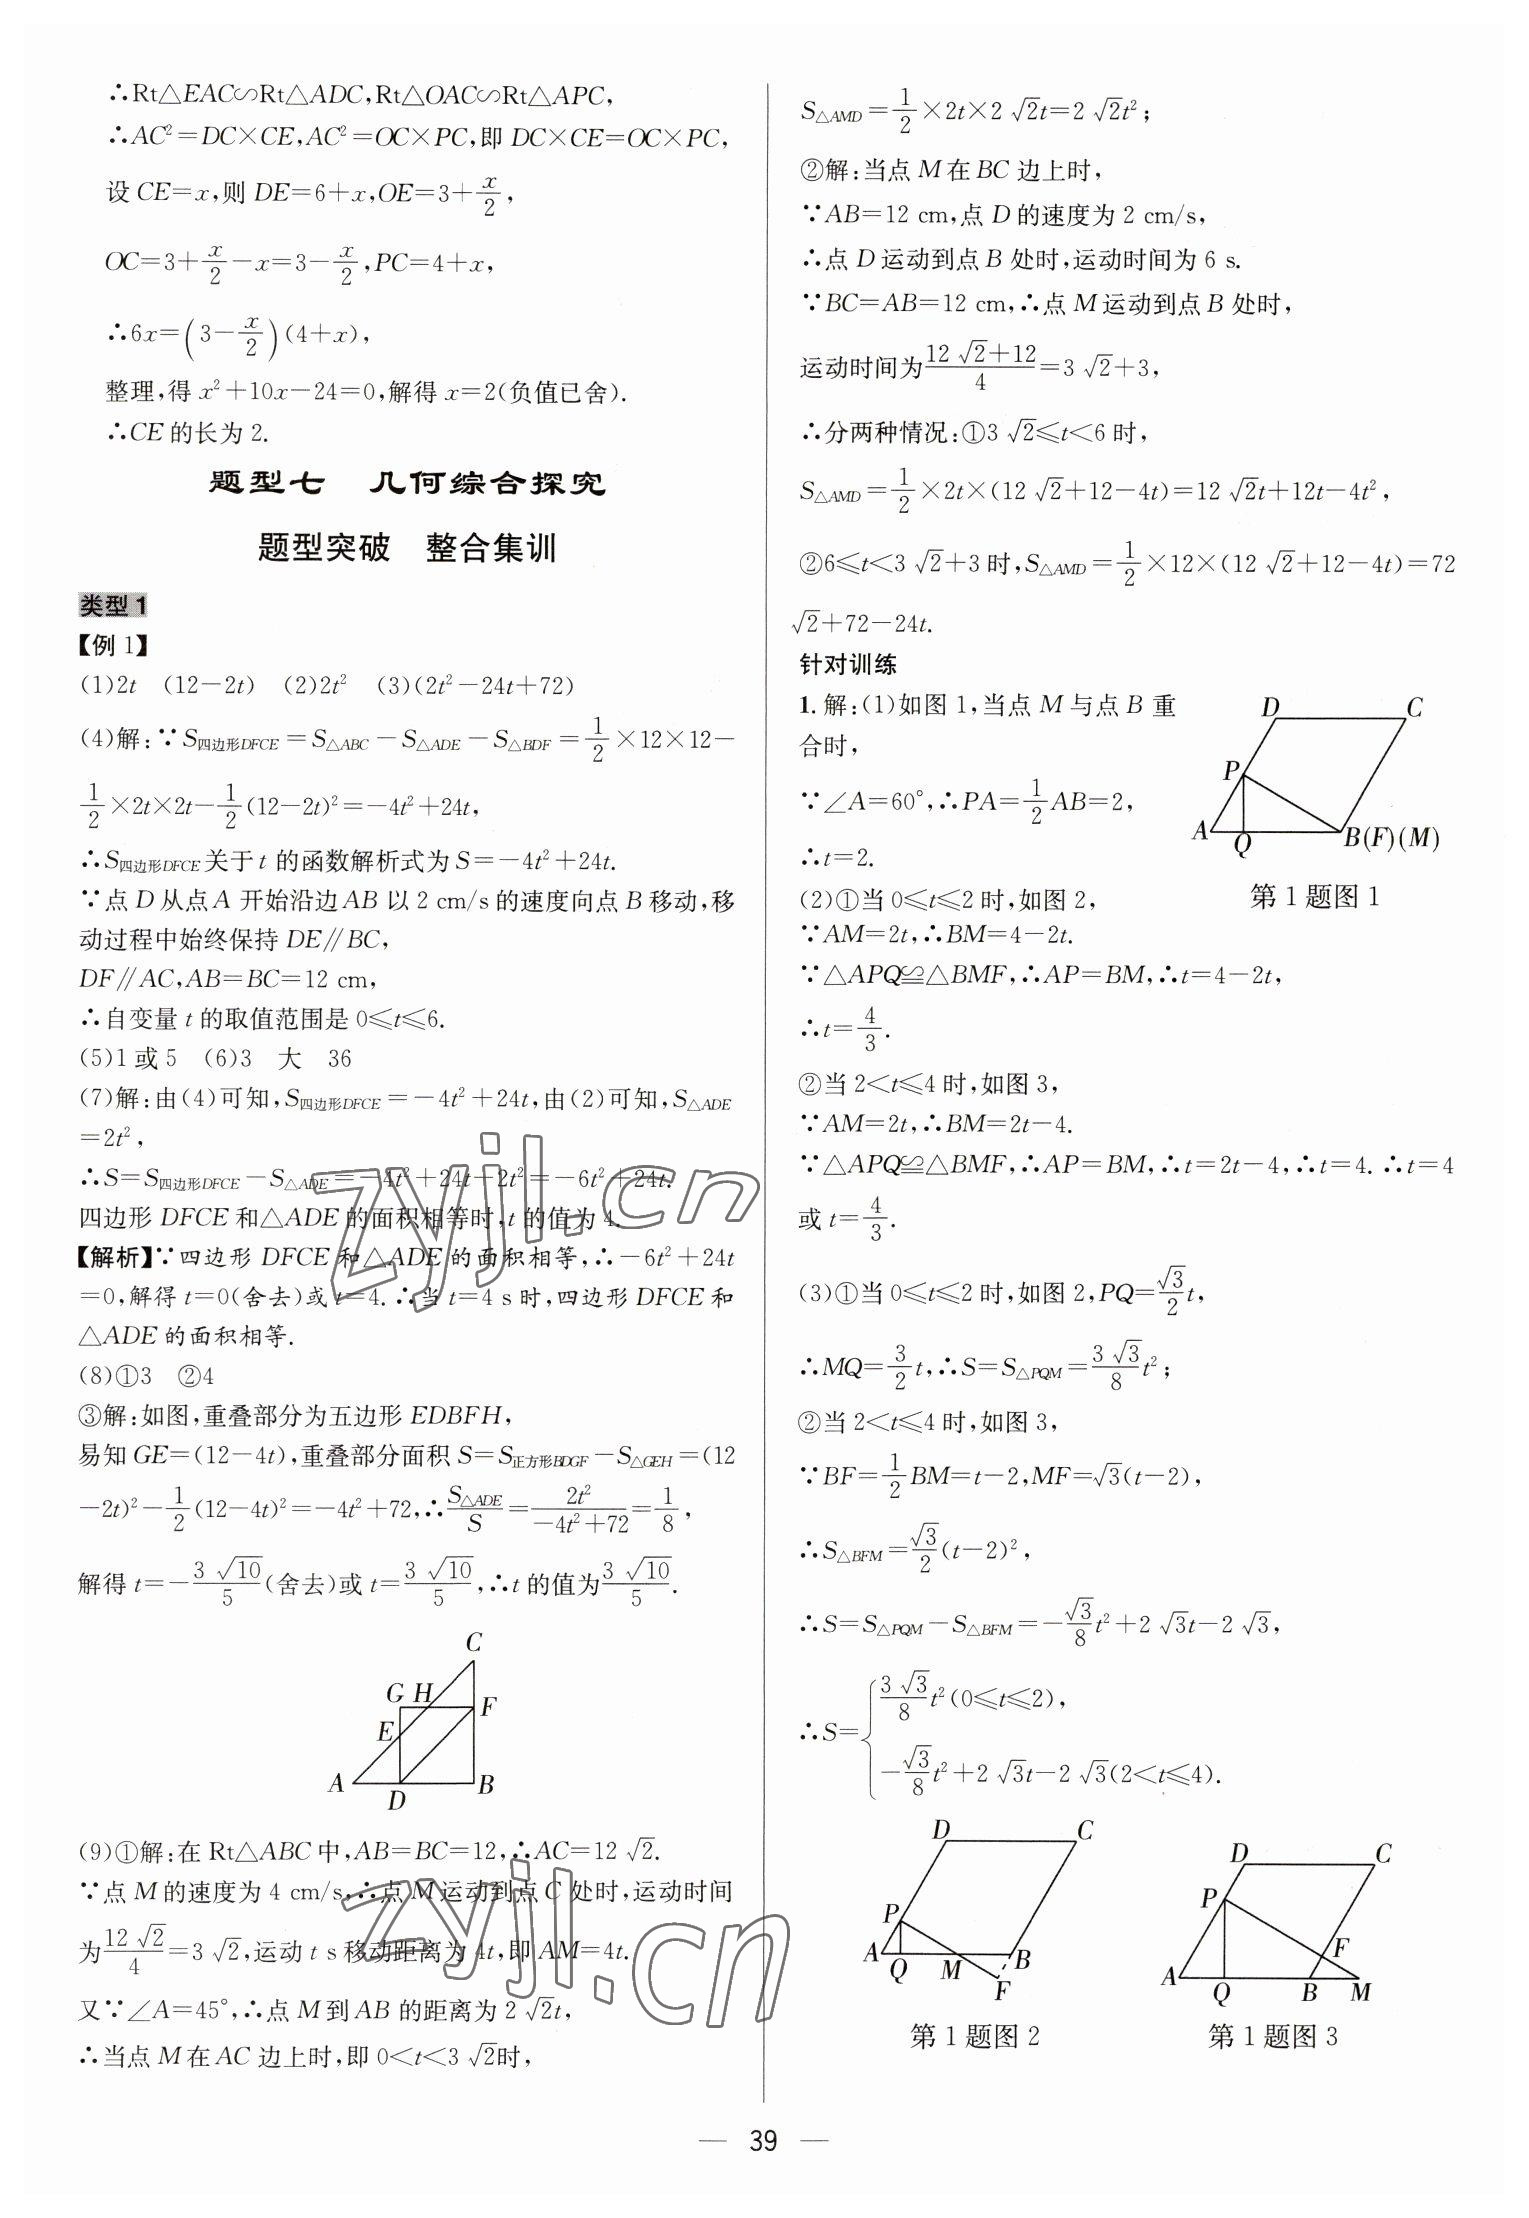 ∴Rt△EAC∽Rt△ADC,Rt△OAC∽Rt△APC,
∴AC²=DC×CE,AC²=OC×PC,即 DC×CE=OC×PC,
设 CE=x,则 DE=6+x,OE=3+x/2,
OC=3+x/2-x=3-x/2,PC=4+x,
∴6x=(3-x/2)(4+x),
整理,得 x²+10x-24=0,解得 x=2(负值已舍).
∴CE 的长为 2.
题型七 几何综合探究
题型突破 整合集训
类型 1
【例 1】
(1)2t (12-2t) (2)2t² (3)(2t²-24t+72)
(4)解:∵S四边形DFCE=S△ABC-S△ADE-S△BDF=1/2×12×12-
1/2×2t×2t-1/2(12-2t)²=-4t²+24t,
∴S四边形DFCE关于 t 的函数解析式为 S=-4t²+24t.
∵点 D 从点 A 开始沿边 AB 以 2 cm/s 的速度向点 B 移动,移
动过程中始终保持 DE∥BC,
DF∥AC,AB=BC=12 cm,
∴自变量 t 的取值范围是 0≤t≤6.
(5)1 或 5 (6)3 大 36
(7)解:由(4)可知,S四边形DFCE=-4t²+24t,由(2)可知,S△ADE
=2t²,
∴S=S四边形DFCE-S△ADE=-4t²+24t-2t²=-6t²+24t.
四边形 DFCE 和△ADE 的面积相等时,t 的值为 4.
【解析】∵四边形 DFCE 和△ADE 的面积相等,∴-6t²+24t
=0,解得 t=0(舍去)或 t=4.∴当 t=4 s 时,四边形 DFCE 和
△ADE 的面积相等.
(8)①3 ②4
③解:如图,重叠部分为五边形 EDBFH,
易知 GE=(12-4t),重叠部分面积 S=S正方形BDGF-S△GEH=(12
-2t)²-1/2(12-4t)²=-4t²+72,∴S△ADE/S=2t²/(-4t²+72)=1/8,
解得 t=-3√10/5(舍去)或 t=3√10/5,∴t 的值为3√10/5.
C
G H F
E
A D B
(9)①解:在 Rt△ABC 中,AB=BC=12,∴AC=12√2.
∵点 M 的速度为 4 cm/s,∴点 M 运动到点 C 处时,运动时间
为12√2/4=3√2,运动 t s 移动距离为 4t,即 AM=4t.
又∵∠A=45°,∴点 M 到 AB 的距离为 2√2t,
∴当点 M 在 AC 边上时,即 0<t<3√2时,
S△AMD=1/2×2t×2√2t=2√2t²;
②解:当点 M 在 BC 边上时,
∵AB=12 cm,点 D 的速度为 2 cm/s,
∴点 D 运动到点 B 处时,运动时间为 6 s.
∵BC=AB=12 cm,∴点 M 运动到点 B 处时,
运动时间为(12√2+12)/4=3√2+3,
∴分两种情况:①3√2≤t<6 时,
S△AMD=1/2×2t×(12√2+12-4t)=12√2t+12t-4t²,
②6≤t<3√2+3 时,S△AMD=1/2×12×(12√2+12-4t)=72
√2+72-24t.
针对训练
1.解:(1)如图 1,当点 M 与点 B 重
合时,
∵∠A=60°,∴PA=1/2AB=2,
∴t=2.
D C
P
A Q B(F)(M)
第 1 题图 1
(2)①当 0≤t≤2 时,如图 2,
∵AM=2t,∴BM=4-2t.
∵△APQ≌△BMF,∴AP=BM,∴t=4-2t,
∴t=4/3.
②当 2<t≤4 时,如图 3,
∵AM=2t,∴BM=2t-4.
∵△APQ≌△BMF,∴AP=BM,∴t=2t-4,∴t=4.∴t=4
或 t=4/3.
(3)①当 0≤t≤2 时,如图 2,PQ=√3/2t,
∴MQ=3/2t,∴S=S△PQM=3√3/8t²;
②当 2<t≤4 时,如图 3,
∵BF=1/2BM=t-2,MF=√3(t-2),
∴S△BFM=√3/2(t-2)²,
∴S=S△PQM-S△BFM=-√3/8t²+2√3t-2√3,
∴S={3√3/8t²(0≤t≤2),
-√3/8t²+2√3t-2√3(2<t≤4).
D C
P
A Q M B
F
第 1 题图 2
D C
P
F
A Q B M
第 1 题图 3
39
zyjl.cn
zyjl.cn